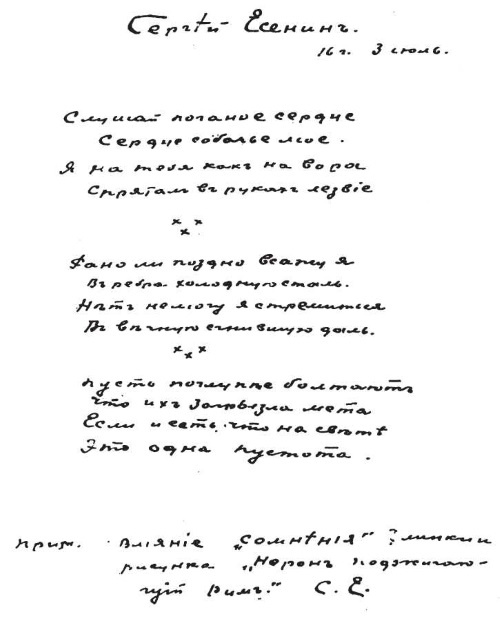 Сергѣй Есенинъ.
16 г. 3 июль.
Слушай поганое сердце
Сердце собачье мое.
Я на тебя какъ на вора
Спряталъ въ рукахъ лезвіе
× × ×
Рано ли поздно всажу я
Въ ребра холодную сталь.
Нѣтъ не могу я стремиться
Въ вѣчную сгнившую даль.
× × ×
Пусть поглупѣе болтаютъ
Что ихъ загрызла мета
Если и есть что на свѣтѣ
Это одна пустота.
Прим. Вліяніе „Сомнѣнія" Глинки и
рисунка „Неронъ поджигаю-
щій Римъ." С. Е.